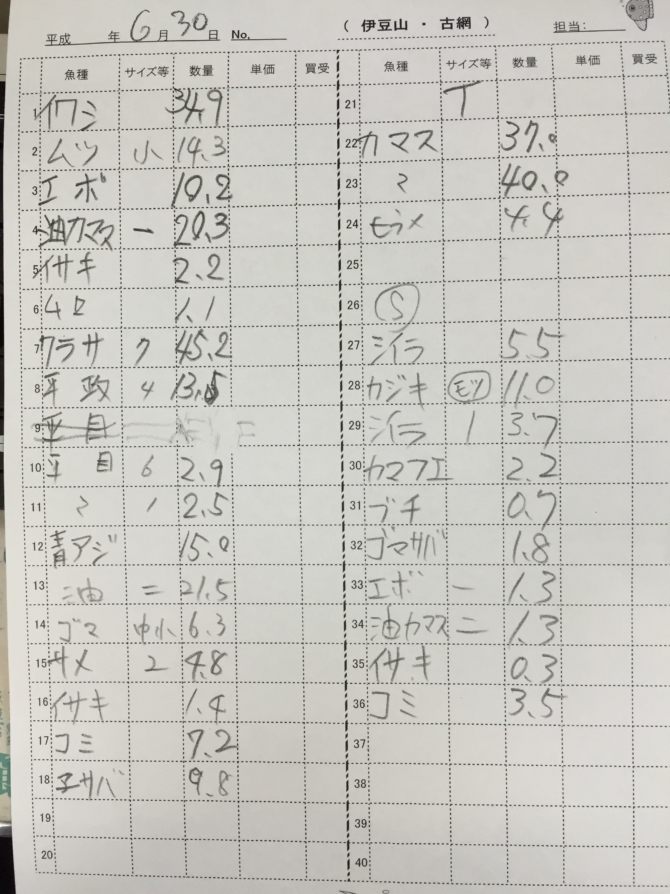 平成 年 6月 30日 No. ( 伊豆山 ・ 古網 ) 担当:
魚種 サイズ等 数量 単価 買受
1 イワシ 34.9
2 ムツ 小 14.3
3 エボ 10.2
4 油カマス 一 20.3
5 イサキ 2.2
6 ムロ 1.1
7 ワラサ 7 45.2
8 平政 4 13.5
9 平目
10 平目 6 2.9
11 〃 1 2.5
12 青アジ 15.0
13 油 二 21.5
14 ゴマ 中小 6.3
15 サメ 2 4.8
16 イサキ 1.4
17 コミ 7.2
18 子サバ 9.8
19
20
魚種 サイズ等 数量 単価 買受
21 T
22 カマス 37.0
23 〃 40.0
24 ヒラメ 4.4
25
26 S
27 シイラ 5.5
28 カジキ モツ 11.0
29 シイラ 1 3.7
30 カマフエ 2.2
31 ブチ 0.7
32 ゴマサバ 1.8
33 エボ 一 1.3
34 油カマス 二 1.3
35 イサキ 0.3
36 コミ 3.5
37
38
39
40